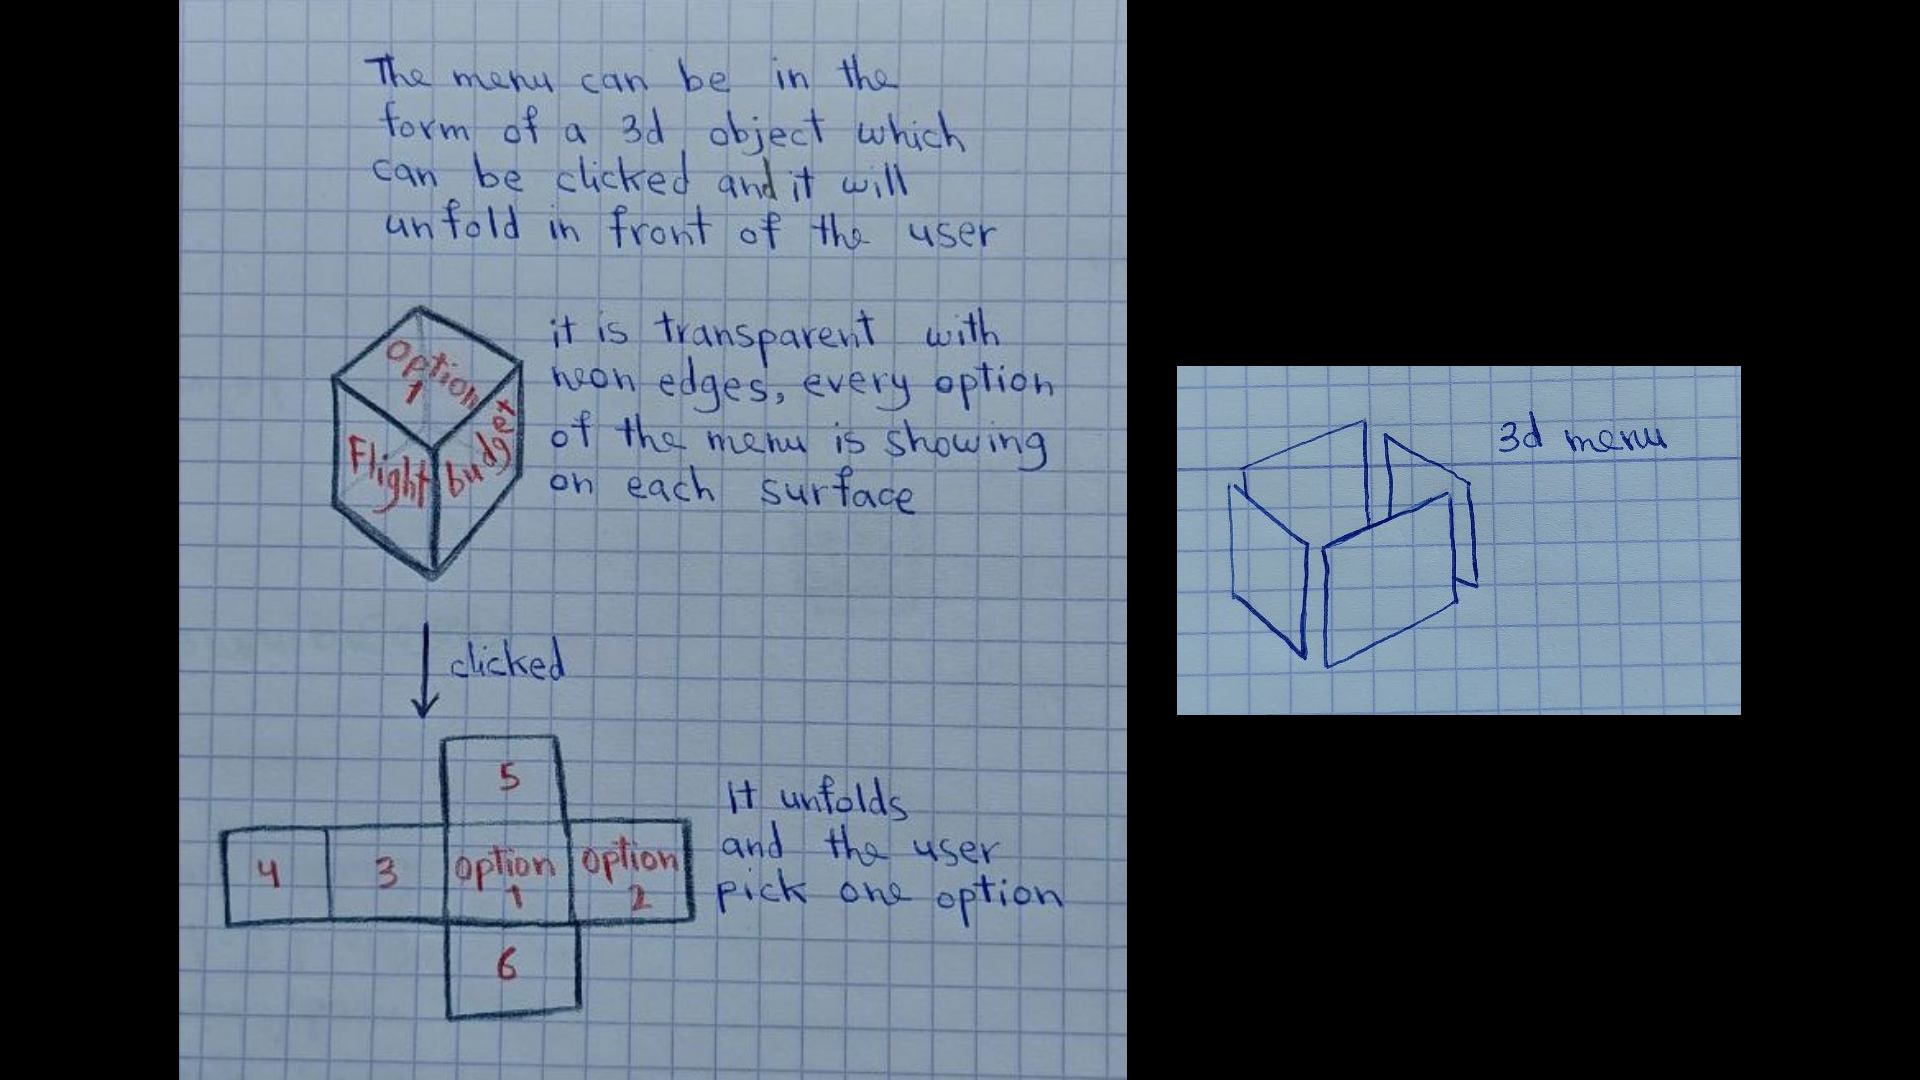 The menu can be in the
form of a 3d object which
can be clicked and it will
unfold in front of the user
it is transparent with
neon edges, every option
of the menu is showing
on each surface
option
1
Flight
budget
clicked
5
4
3
option
1
option
2
6
It unfolds
and the user
pick one option
3d menu